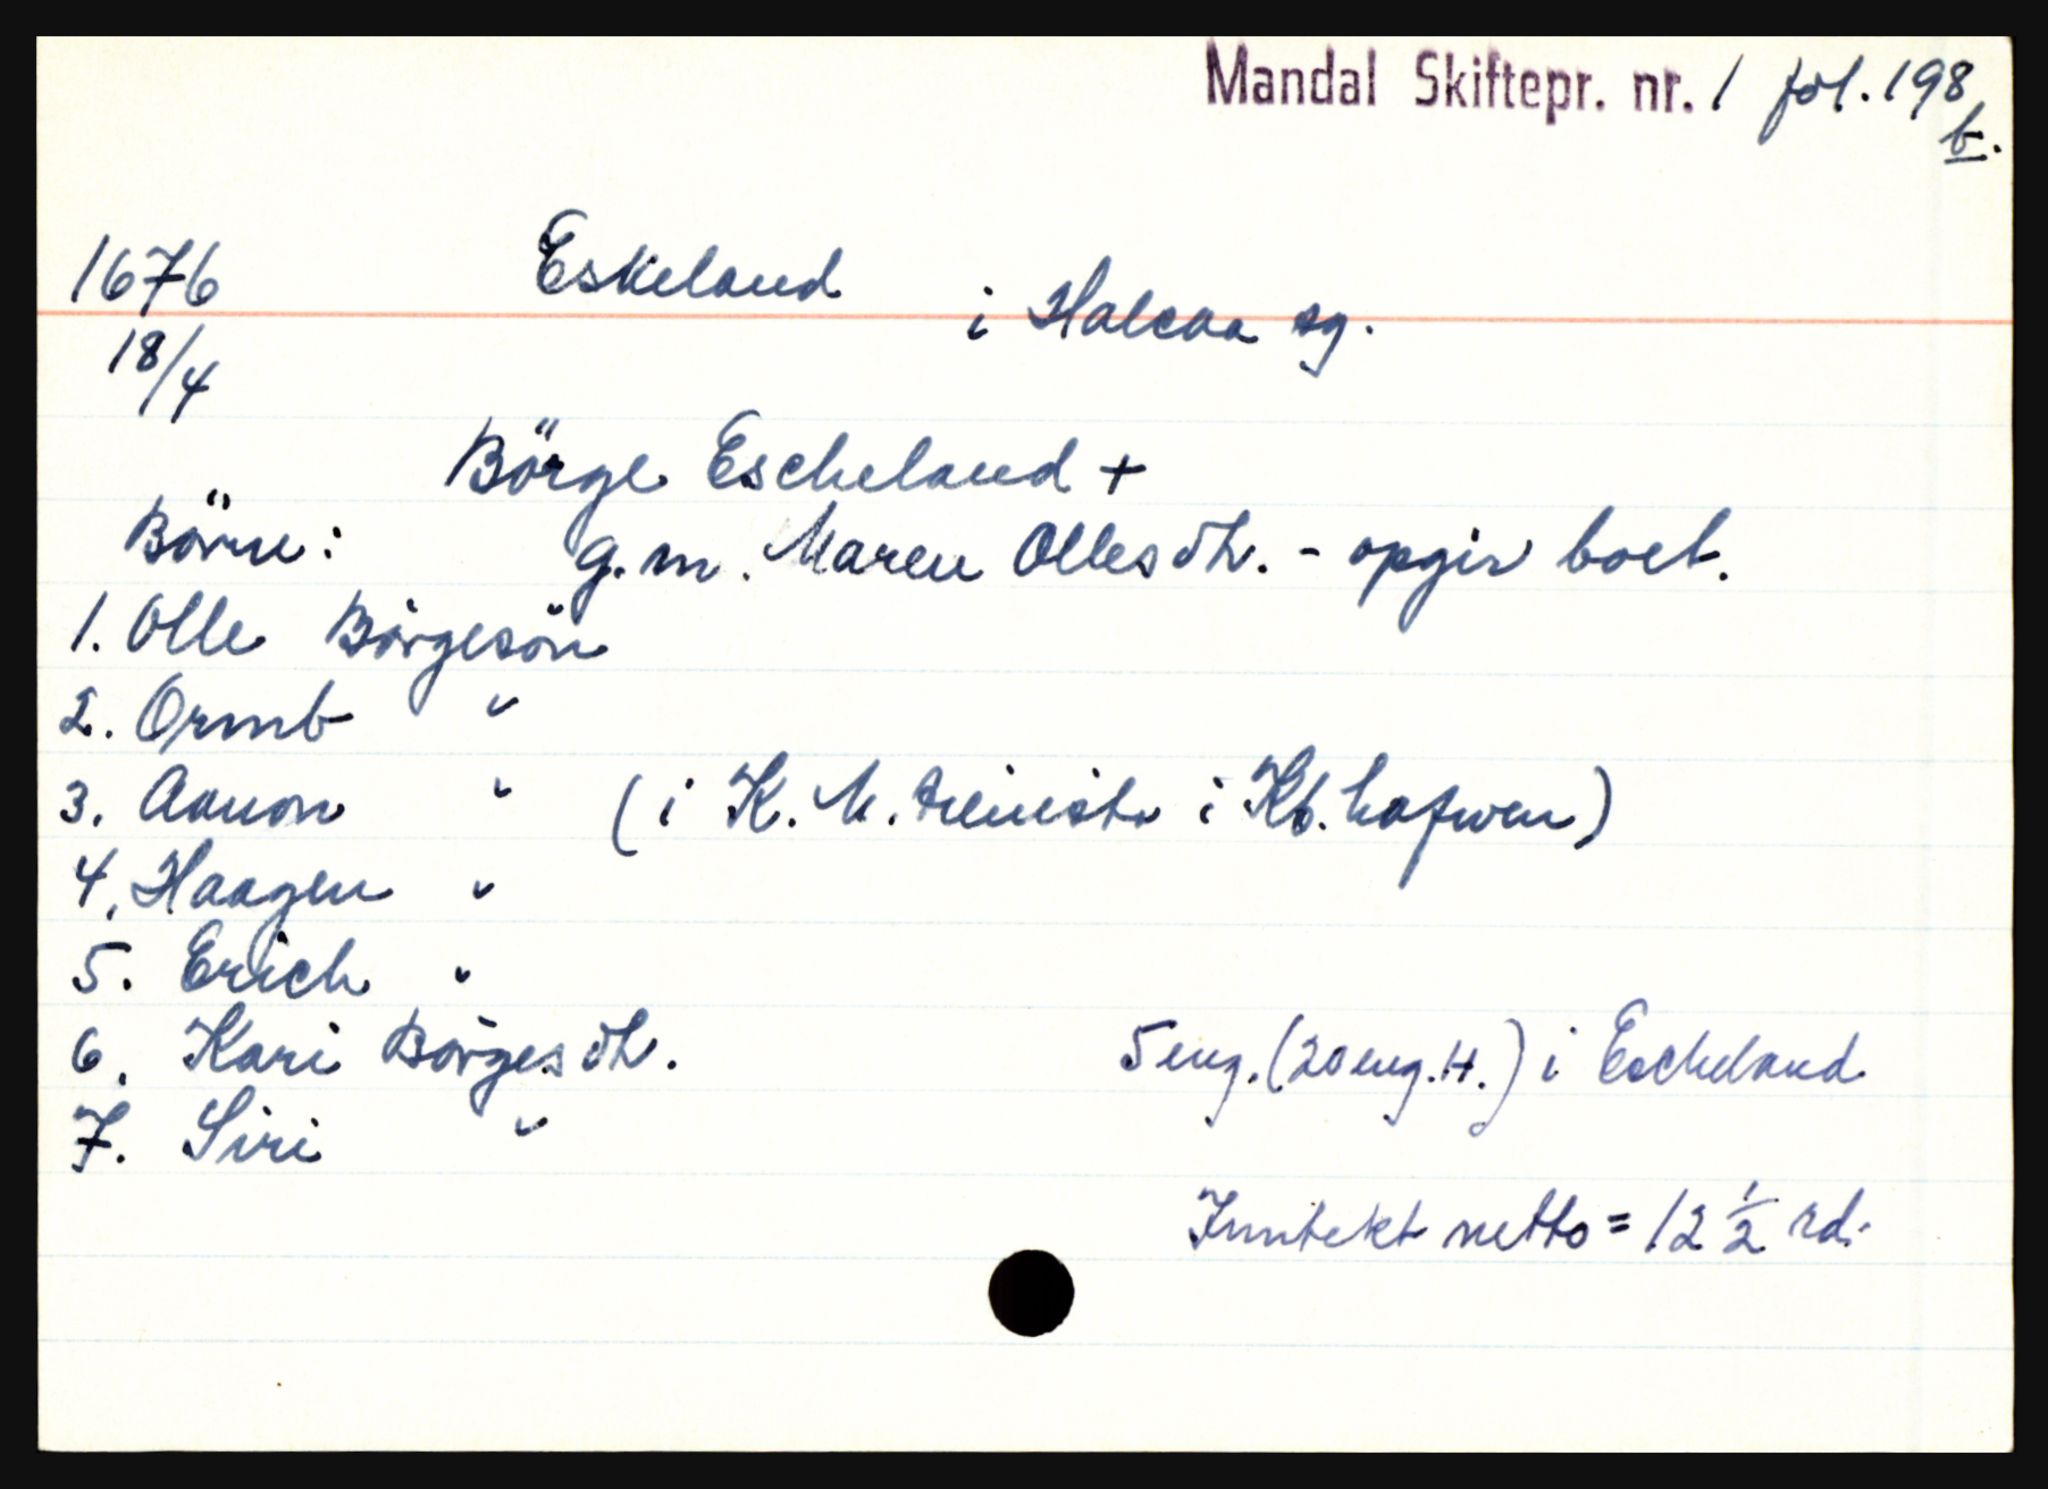 Mandal Skiftepr. nr. 1 fol. 198
b.
1676 Eskeland i Halcaa sg.
18/4
Börge Escheland +
Börn: g.m. Maren Ollesdtr. - opgir boet.
1. Olle Börgesön
2. Ormb "
3. Aanon " (i K. M. tieniste i Kb.hafwen)
4. Haagen "
5. Erich "
6. Kari Börgesdtr. 5 eng. (20 eng. H.) i Escheland
7. Siri "
Inntekt netto = 12 1/2 rd.